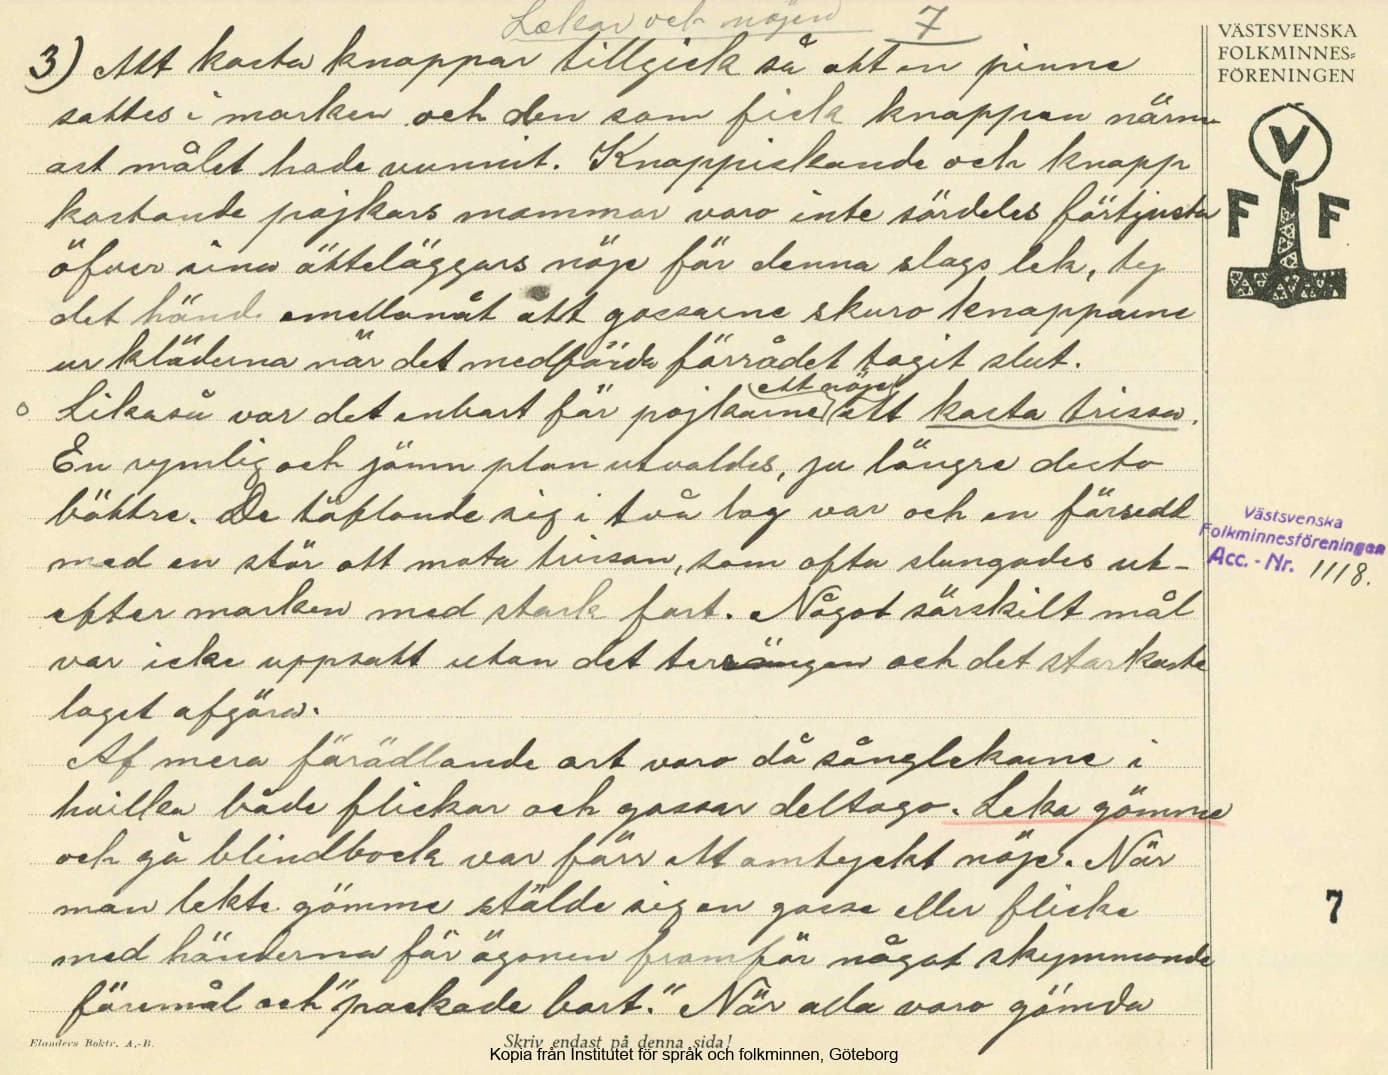 Lekar och nöjen 7
3) Att kasta knappar tillgick så att en pinne
sattes i marken och den som fick knappen närm
ast målet hade vunnit. Knappiskande och knapp
kastande pojkars mammor voro inte särdeles förtjusta
öfver sina ätteläggars nöje för denna slags lek, ty
det hände emellanåt att gossarne skuro knapparne
ur kläderna när det medförda förrådet tagit slut.
Likaså var det enbart för pojkarne ett nöje att kasta trissa.
En rymlig och jämn plan utvaldes, ju längre desto
bättre. De täflande sig i två lag var och en försedd
med en stör att mota trissan, som ofta slungades ut-
efter marken med stark fart. Något särskilt mål
var icke uppsatt utan det terrängen och det starkaste
laget afgöra.
Af mera förädlande art voro då sånglekarne i
hvilka både flickor och gossar deltogo. Leka gömme
och gå blindbock var förr ett omtyckt nöje. När
man lekte gömme stälde sig en gosse eller flicka
med händerna för ögonen framför något skymmande
föremål och "pockade bort." När alla voro gömda
VÄSTSVENSKA
FOLKMINNES=
FÖRENINGEN
V
F F
Västsvenska
Folkminnesföreningen
Acc. - Nr. 1118.
7
Elanders Boktr. A.-B.
Skriv endast på denna sida!
Kopia från Institutet för språk och folkminnen, Göteborg